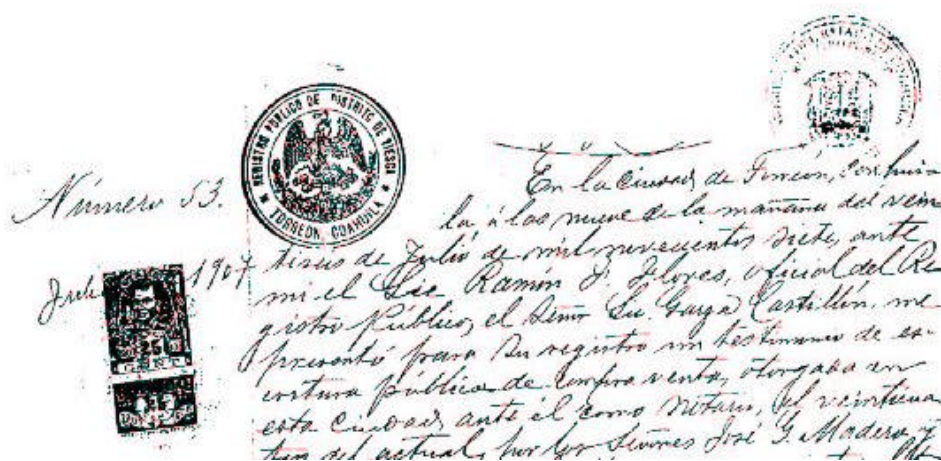 REGISTRO PÚBLICO DE DISTRITO DE VIESCA
TORREON, COAHUILA
Número 53.
1907
En la Ciudad de Torreón, Coahui-
la, á las nueve de la mañana del vein
tiseis de Julio de mil novecientos siete, ante
mi el Lic Ramón J. Flores, oficial del Re
gistro Público, el Señor Lic. Garza Castillón, me
presentó para su registro un testimonio de es-
critura pública de compra venta, otorgada en
esta Ciudad ante él como notario, el veinticua
tro del actual, por los Señores José G. Madero, y